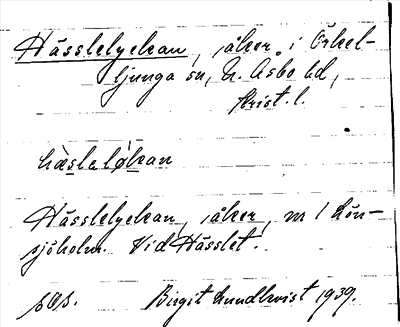 Hässlelyckan, åker, i Örkel-
ljunga sn, N. Åsbo hd,
Krist. l.
hæslaløkan
Hässlelyckan, åker, nr 1 Lön-
sjöholm. Vid Hässlet.
Birgit Lundkvist 1939.